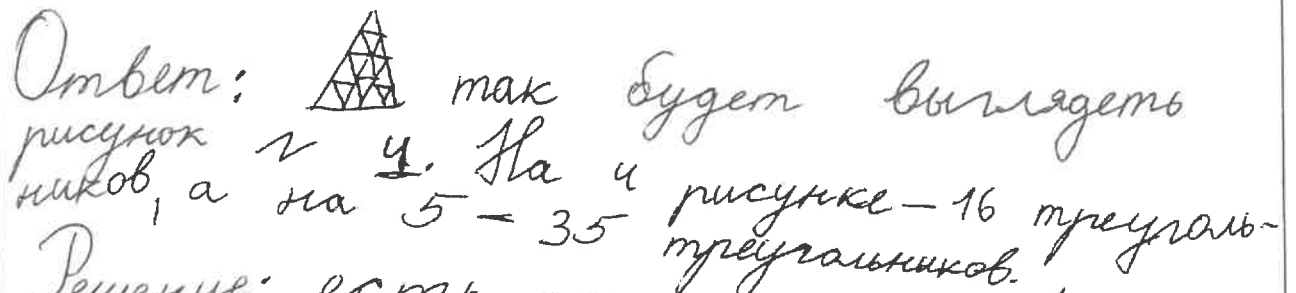 Ответ: так будет выглядеть
рисунок № 4. На 4 рисунке - 16 треуголь-
ников, а на 5 - 35 треугольников.
Решение: есть